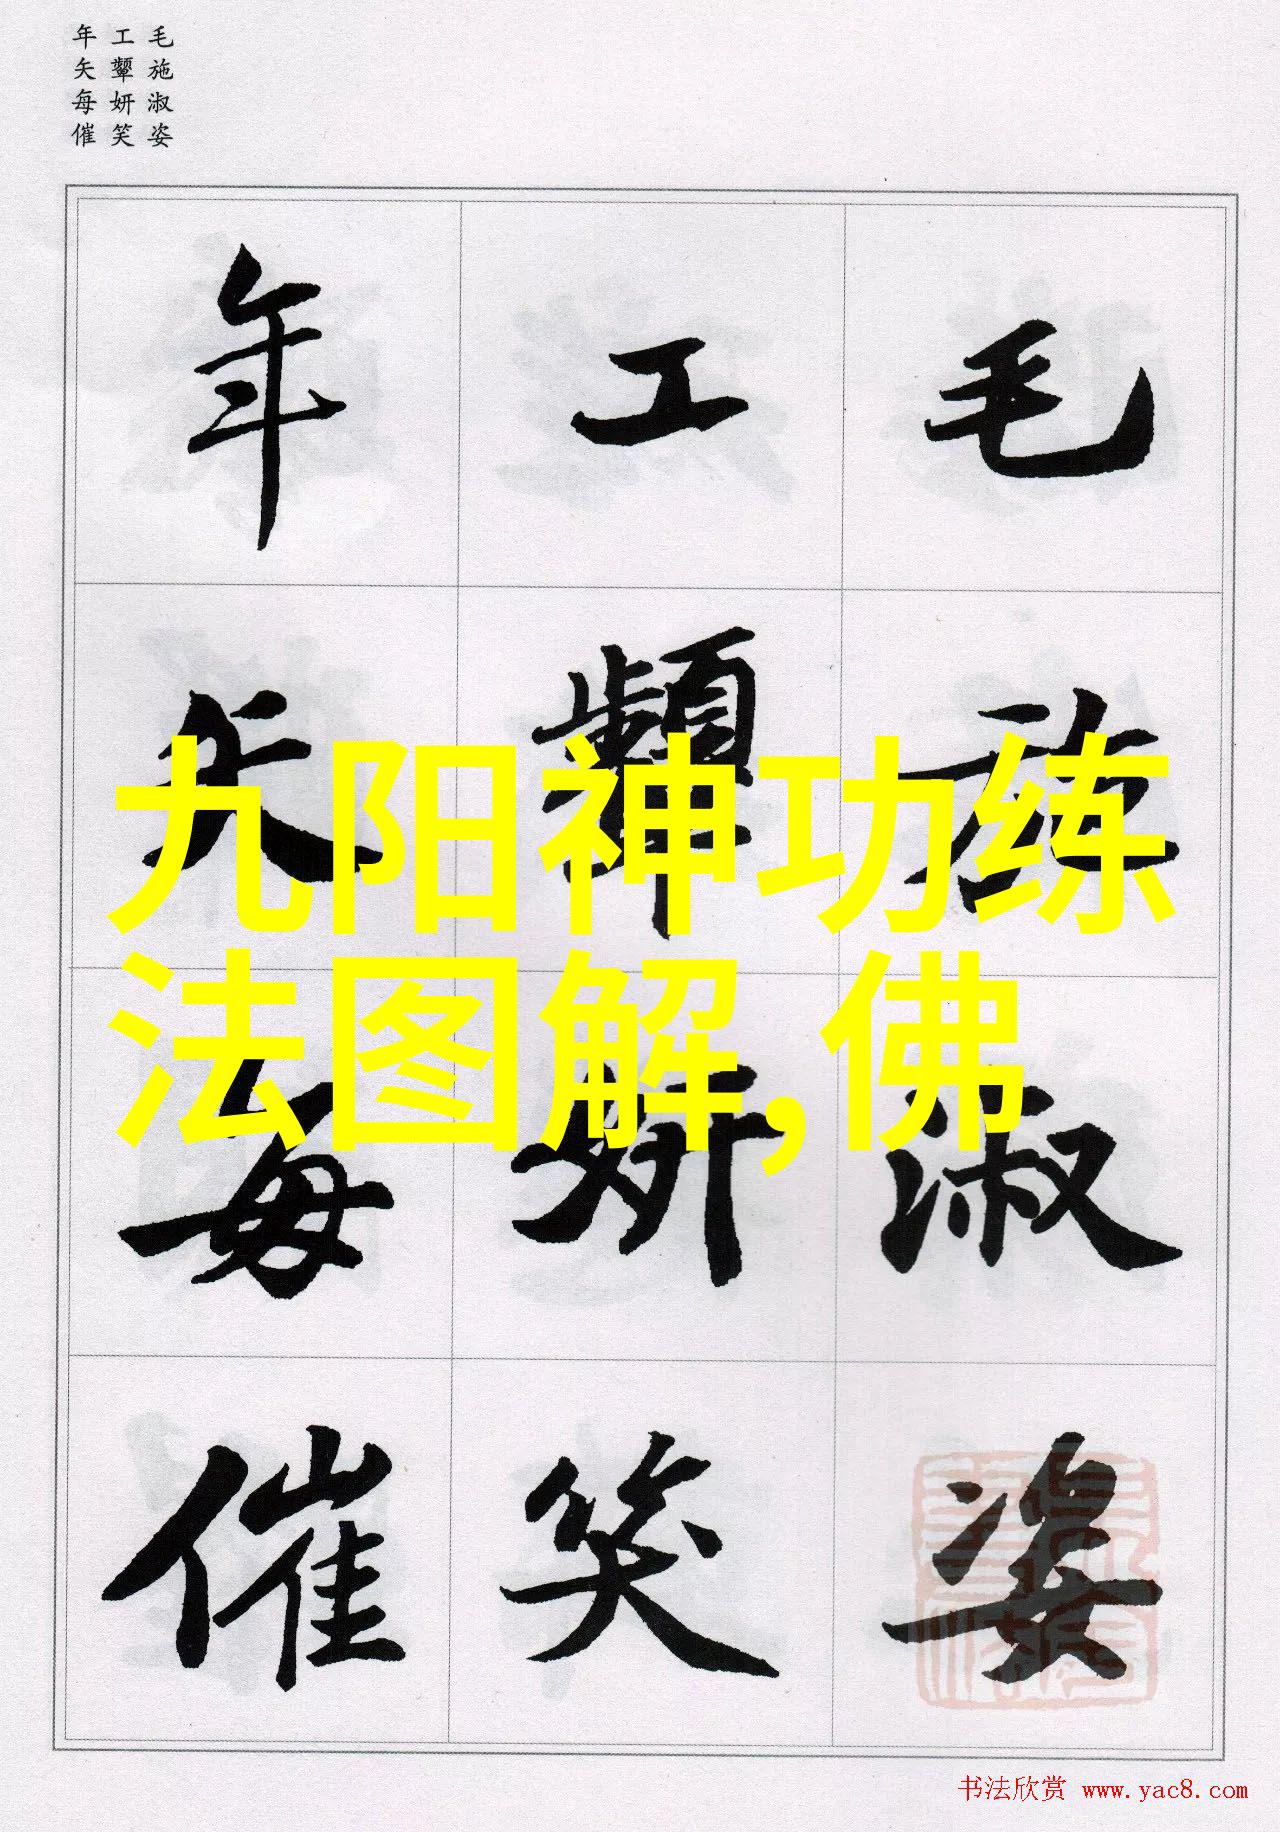 毛施淑姿
工颦妍笑
年矢每催
毛施淑姿
工颦妍笑
年矢每催
九阳神功练
法图解,佛
书法欣赏 www.yac8.com